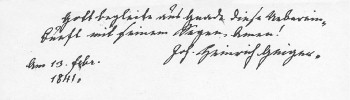 Gott begleite aus Gnade diese Ueberein-
kunft mit seinem Segen. Amen!
Joh. Heinrich Geiger.
Am 13. Febr.
1841.